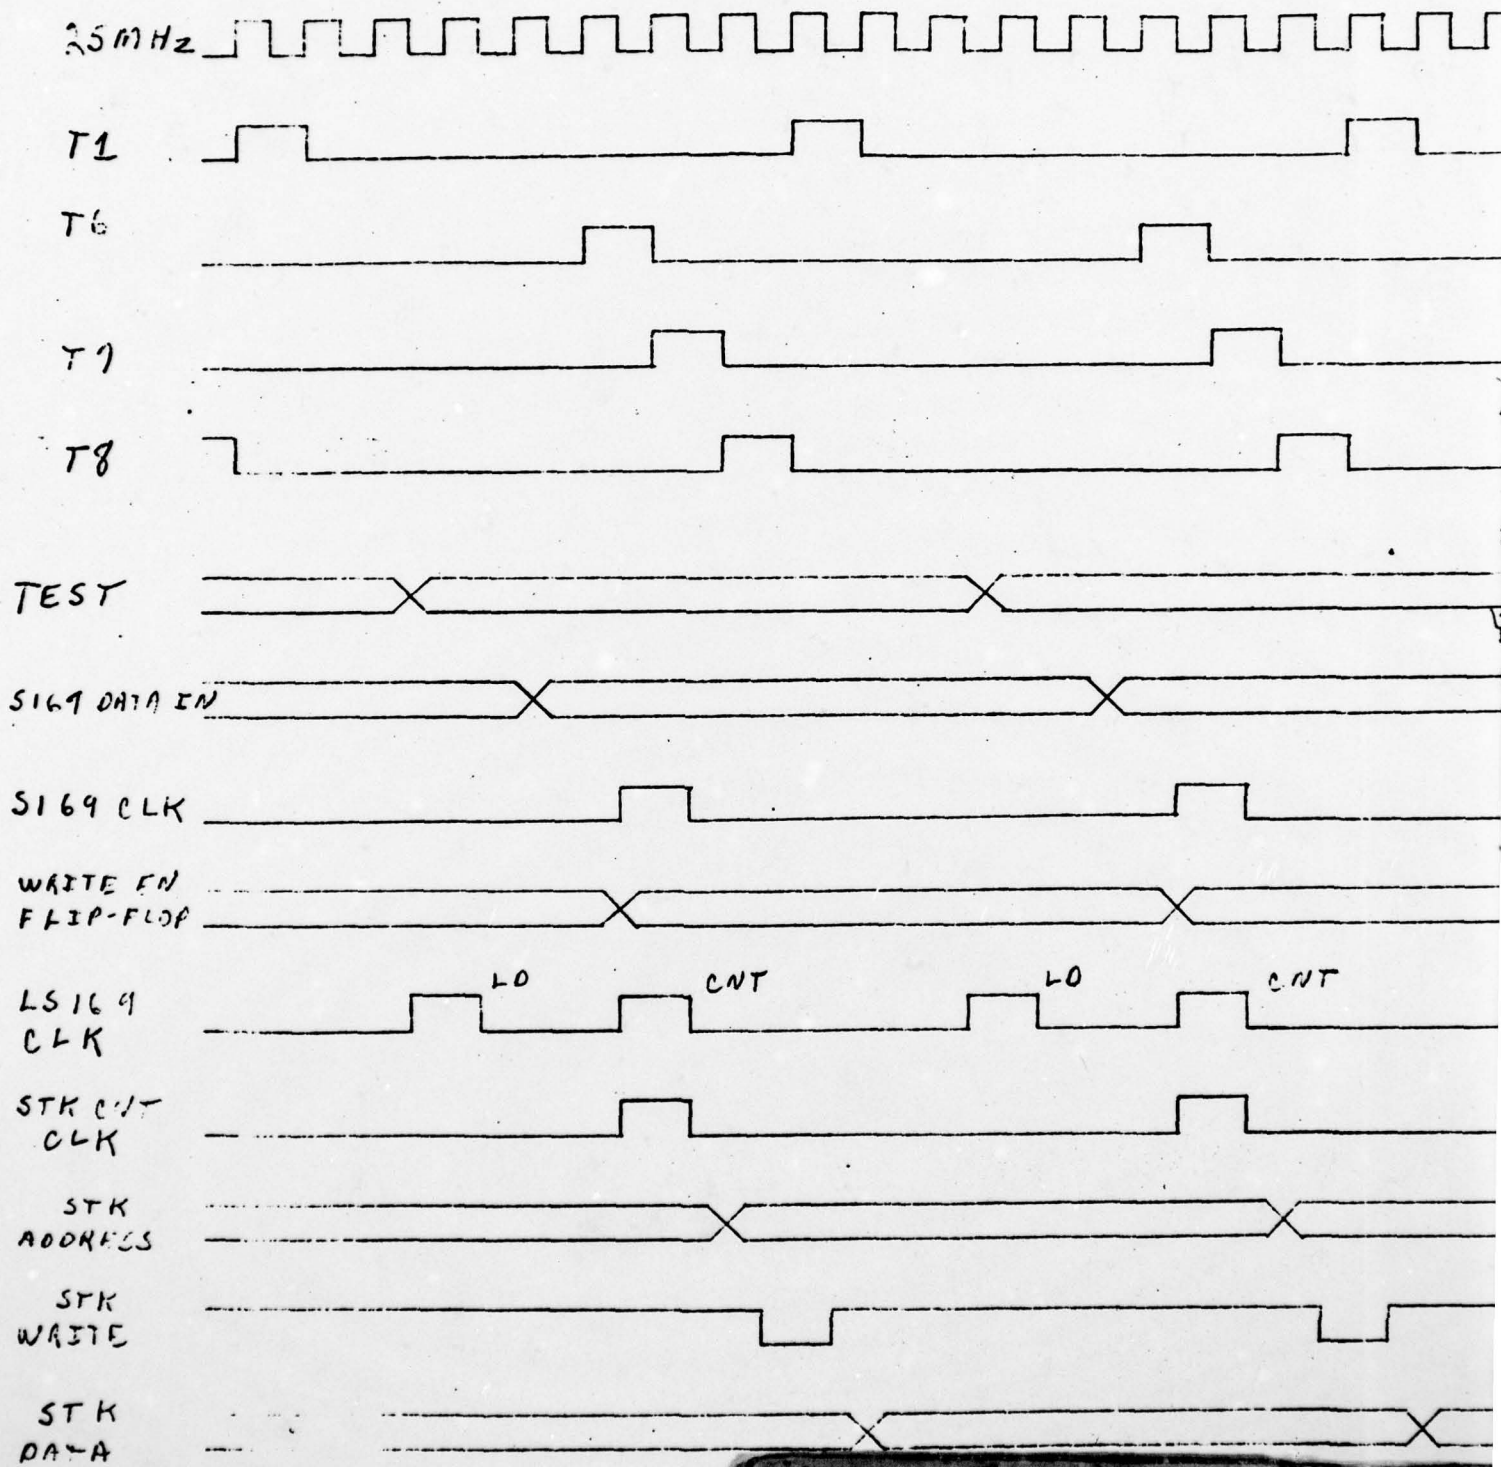 25MHz
T1
T6
T7
T8
TEST
S169 DATA IN
S169 CLK
WRITE EN
FLIP-FLOP
LD CNT LD CNT
LS169
CLK
STK CNT
CLK
STK
ADDRESS
STK
WRITE
STK
DATA